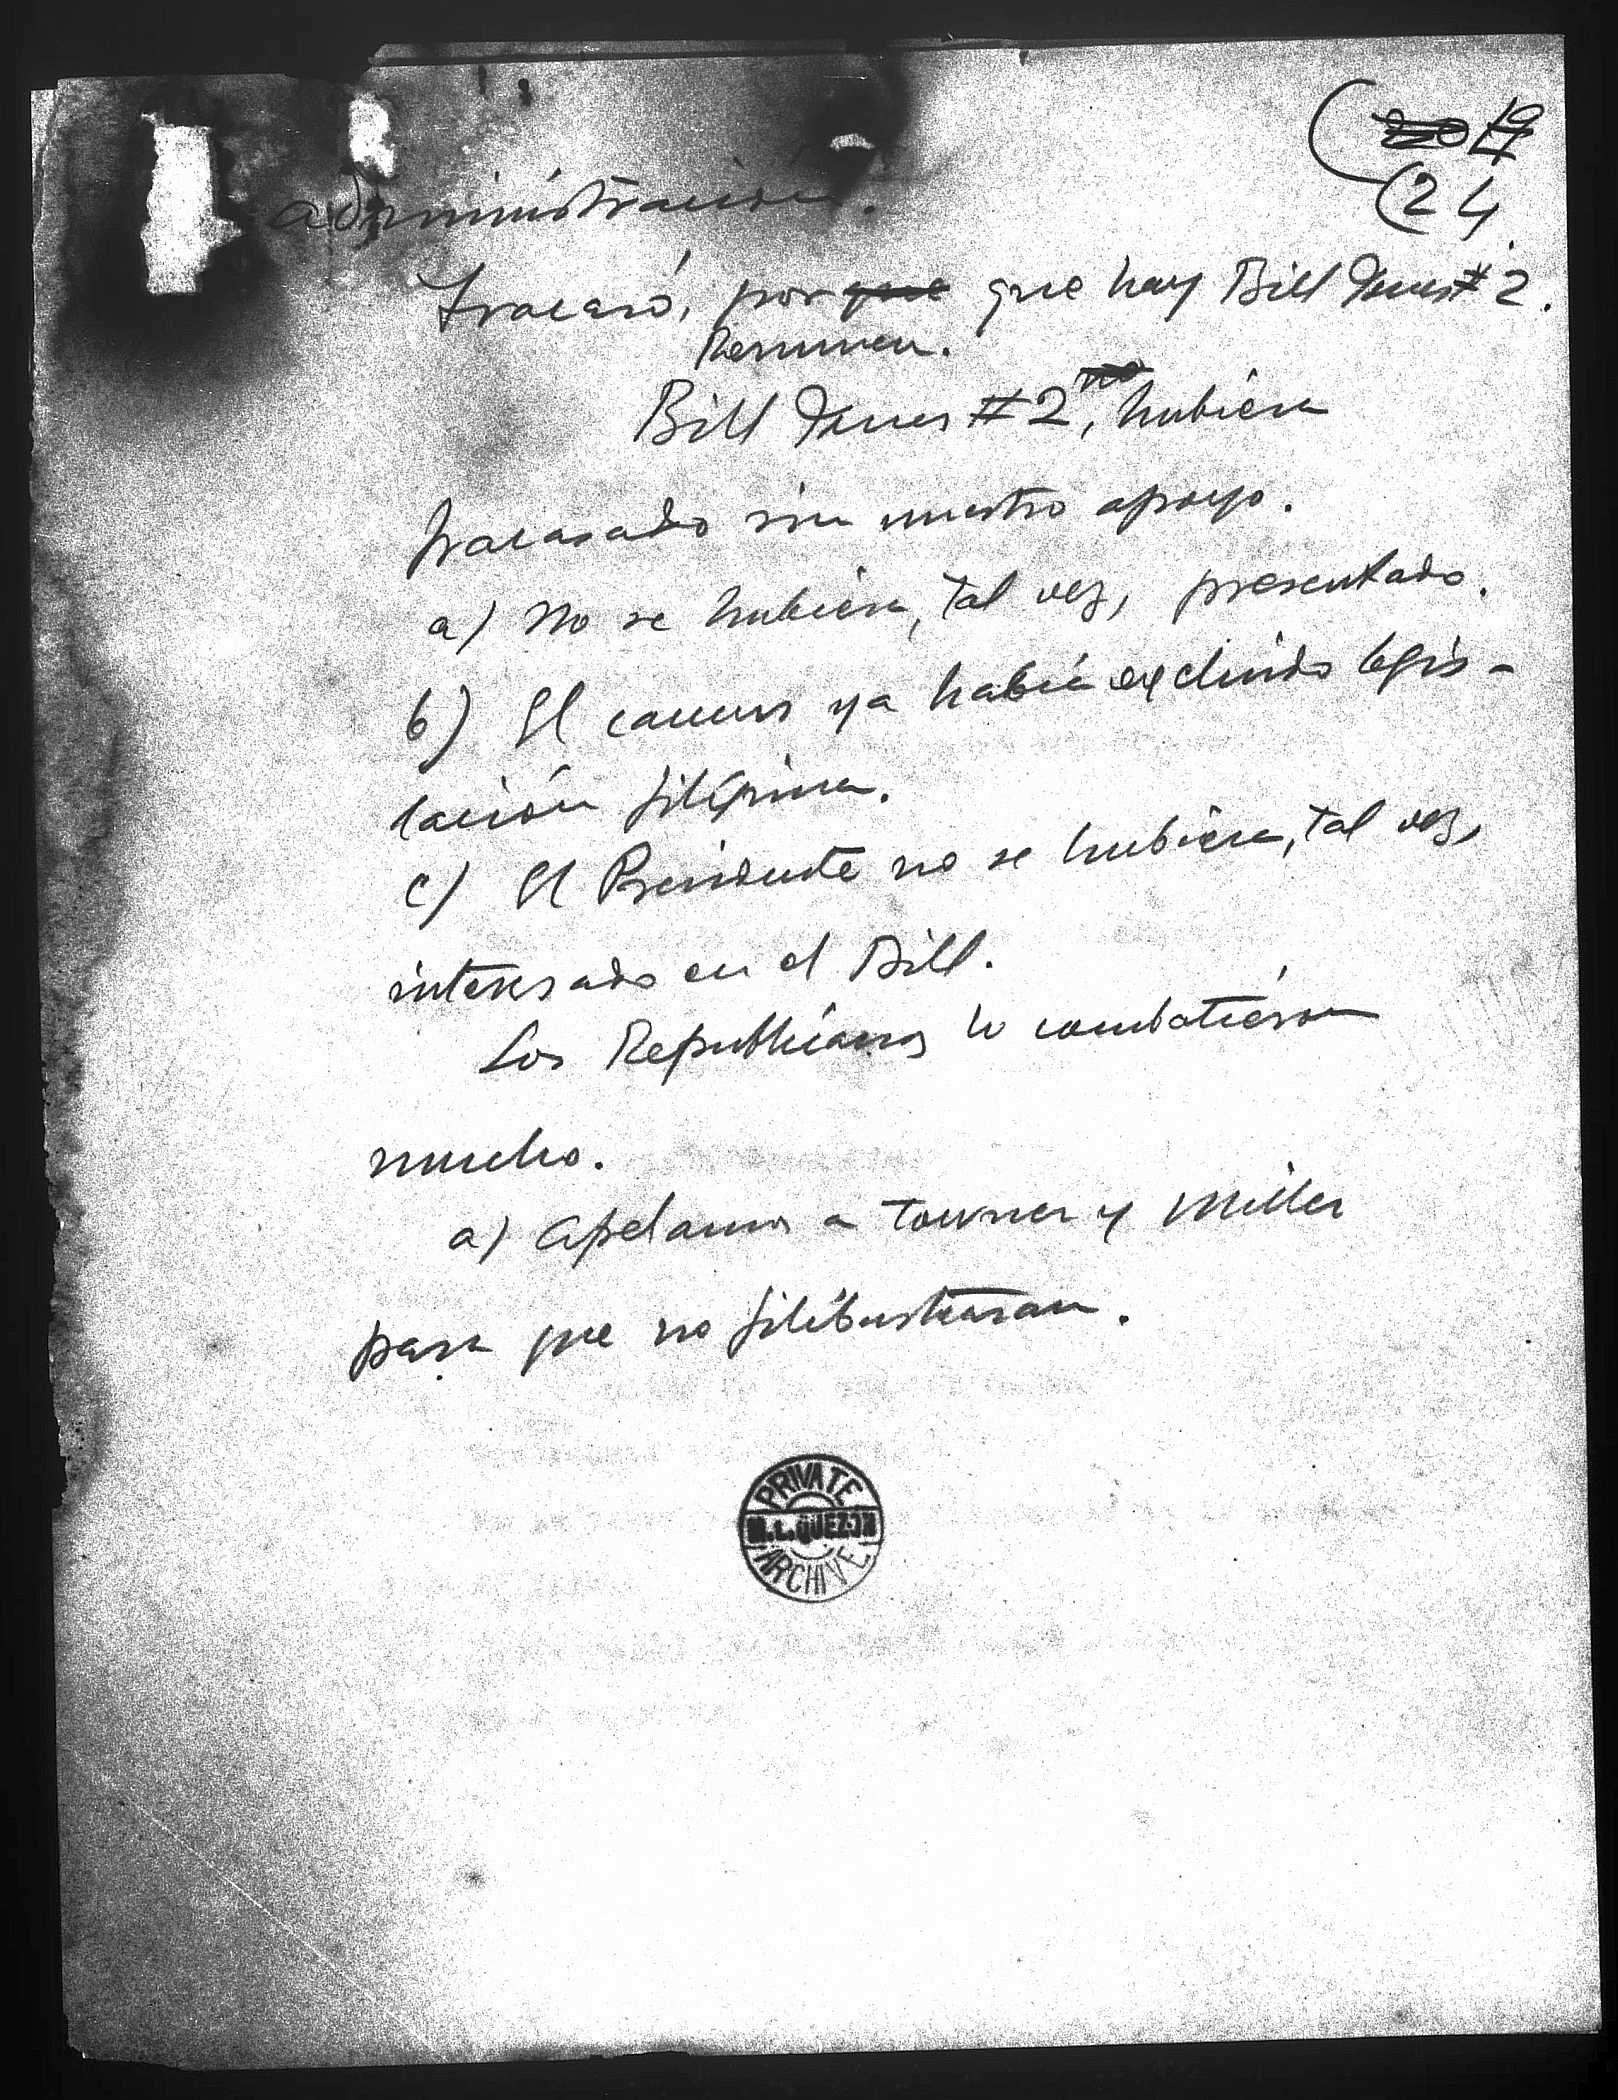 19
(24.
administración.
Fracasó, porque que hay Bill Jones #2.
Resumen.
Bill Jones #2, no hubiera
fracasado sin nuestro apoyo.
a) No se hubiera, tal vez, presentado.
b) El caucus ya había excluido legis-
lación filipina.
c) El Presidente no se hubiera, tal vez,
interesado en el Bill.
Los Republicanos lo combatieron
mucho.
a) Apelamos a Towner y Miller
para que no filibustearan.
PRIVATE
M.L. QUEZON
ARCHIVE